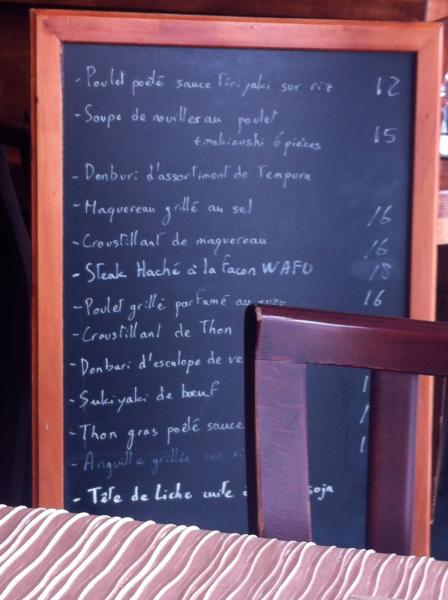 - Poulet poêlé sauce Tériyaki sur riz 12
- Soupe de nouilles au poulet
+ makizushi 6 pièces 15
- Donburi d'assortiment de Tempura
- Maquereau grillé au sel 16
- Croustillant de maquereau 16
- Steak Haché à la facon WAFU 18
- Poulet grillé parfumé au yuzu 16
- Croustillant de Thon
- Donburi d'escalope de
- Sukiyaki de bœuf
- Thon gras poêlé sauce
- Anguille grillée sur
- Tête de Liche cuite soja